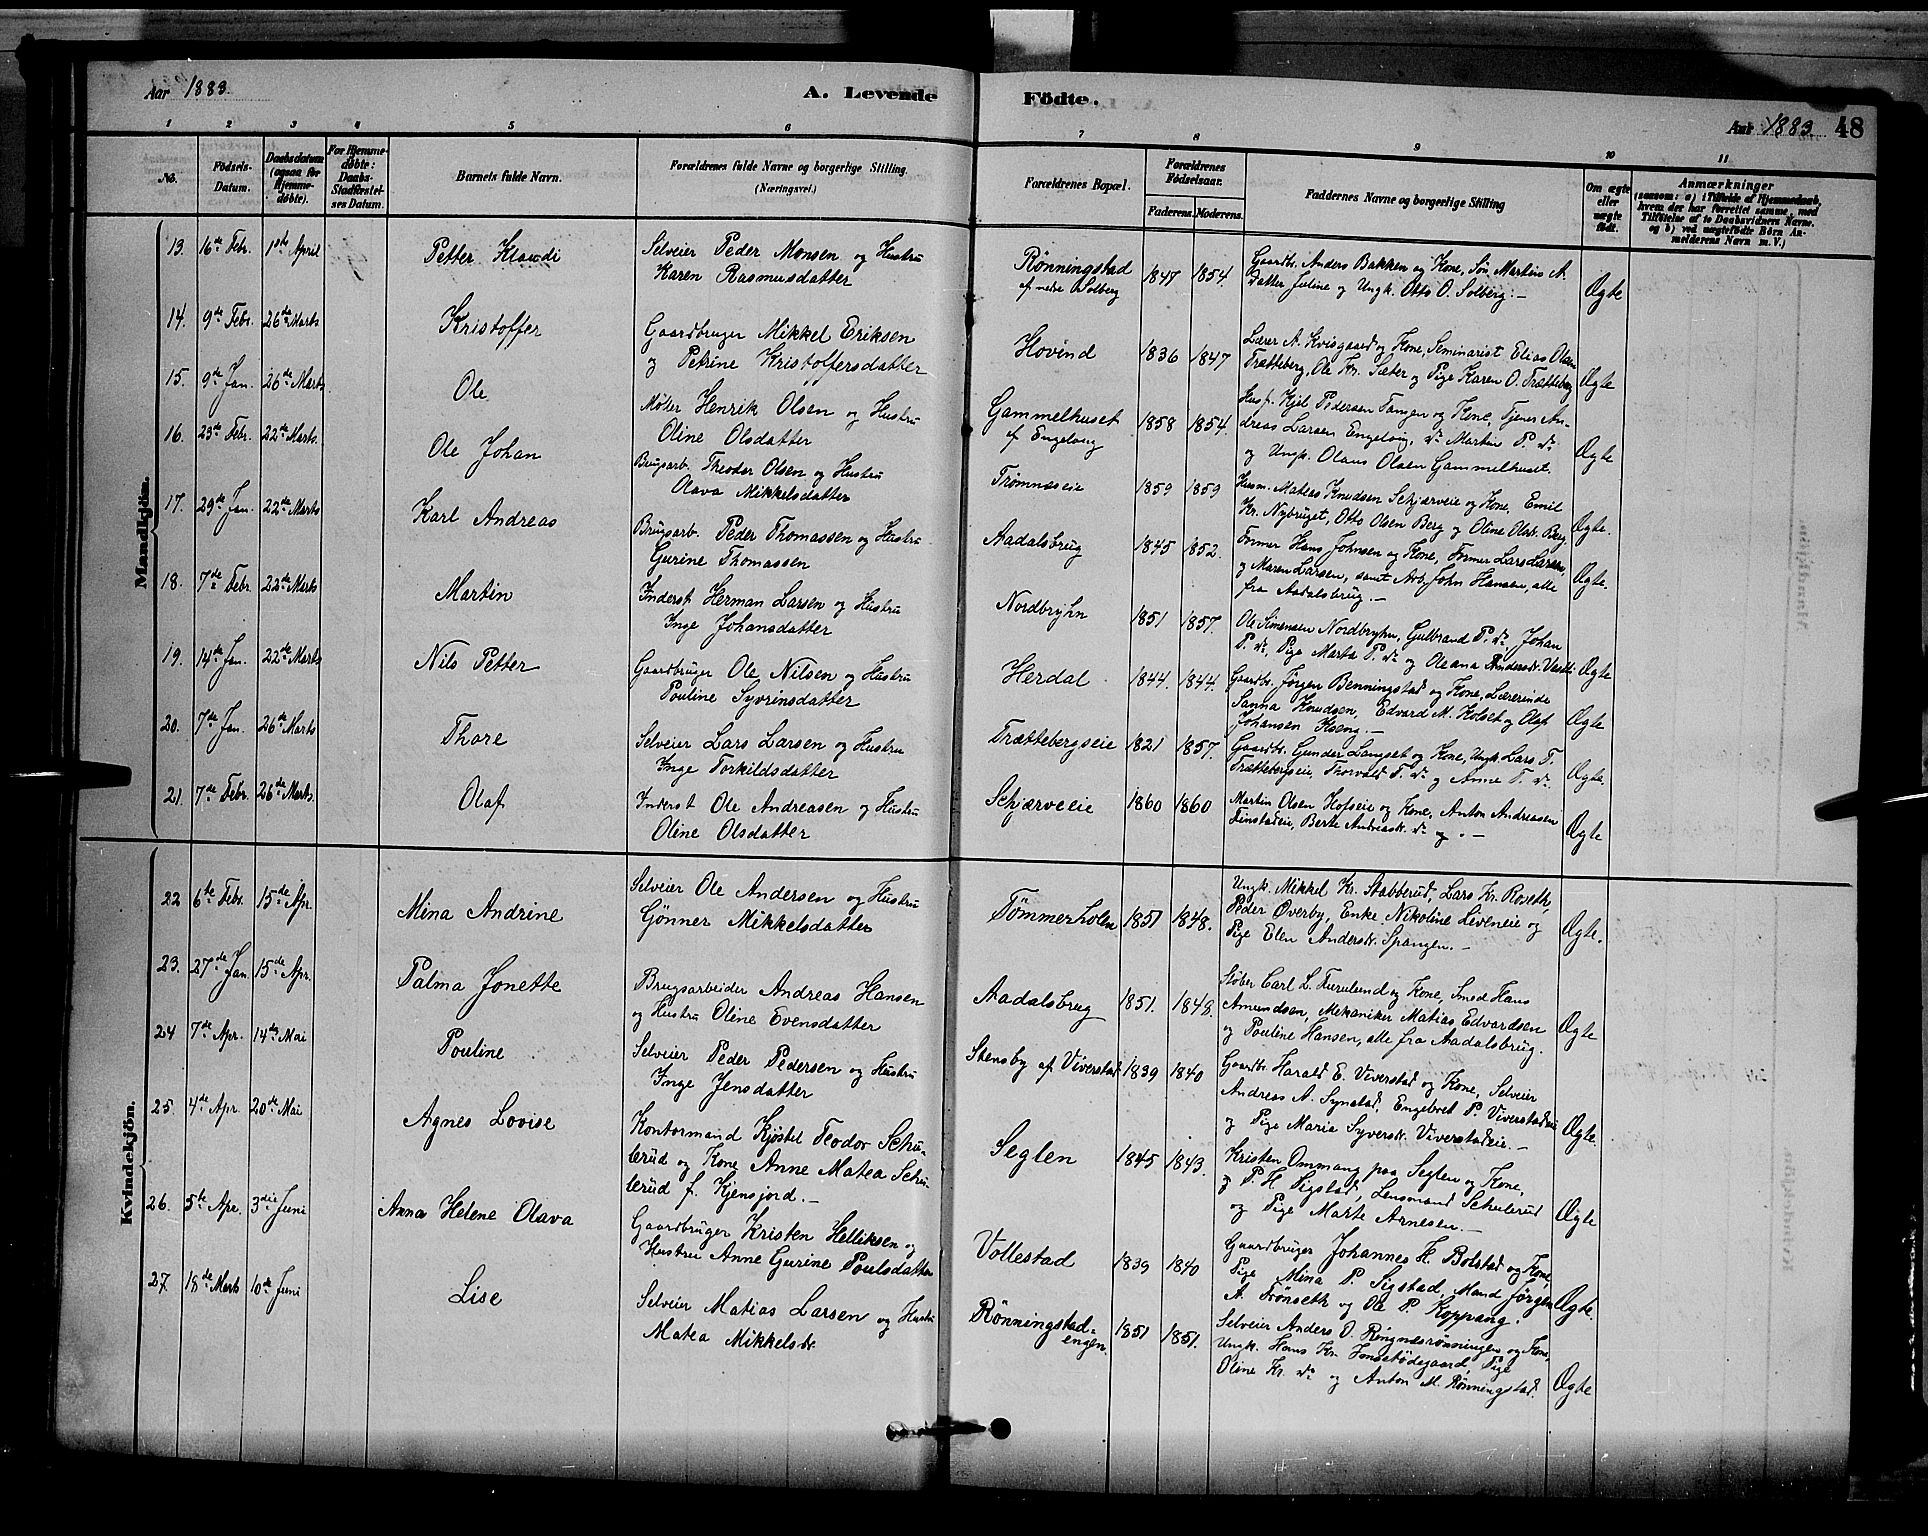 Aar 1883.
A. Levende Födte.
Aar 1883. 48
1 2 3 4 5 6 7 8 9 10 11
No.
Födsels-Datum.
Daabsdatum (ogsaa for Hjemmedöbte).
For Hjemmedöbte: Daabs-Stadfæstelses Datum.
Barnets fulde Navn.
Forældrenes fulde Navne og borgerlige Stilling. (Næringsvei.)
Forældrenes Bopæl.
Forældrenes Födselsaar.
Faderens. Moderens.
Faddernes Navne og borgerlige Stilling
Om ægte eller uægte födt.
Anmærkninger
(saasom: a) i Tilfælde af Hjemmedaab, hvem der har forrettet samme, med Tilföielse af to Daabsvidners Navne. og b) ved uægtefödte Börn Anmelderens Navn m. V.)
Mandkjön.
13. 16de Febr. 1ste April Petter Klaudi
Selveier Peder Monsen og Hustru
Karen Rasmusdatter
Rönningstad
af nedre Solberg
1847 1854.
Gaardbr. Anders Bakken og Kone, Søn Martins A.
Datter Juline og Ungk. Otto O. Solberg. –
Ægte
14. 9de Febr. 26de Marts Kristoffer
Gaardbruger Mikkel Eriksen
og Petrine Kristoffersdatter
Hovind
1836 1847
Lærer A. Kvisgaard og Kone, Seminarist Elias Olsen
Trætteberg, Ole Kr. Sæter og Pige Karen O. Trætteberg
Ægte
15. 9de Jan. 26de Marts Ole
Møler Henrik Olsen og Hustru
Oline Olsdatter
Gammelhuset
af Engeloug
1858 1854.
Husf. Kjel Pedersen Tangen og Kone, Tjener An-
dreas Larsen Engeloug, do Martin P. do
og Ungk. Olaus Olsen Gammelhuset.
Ægte
16. 23de Febr. 22de Marts. Ole Johan
Brugsarb. Theodor Olsen og Hustru
Olava Mikkelsdatter
Trømnæseie
1859 1859
Husm. Mateas Knudsen Schjærveie og Kone, Emil
Kr. Nybruget, Otto Olsen Berg og Oline Olsdr. Berg.
Ægte.
17. 29de Jan. 22de Marts Karl Andreas
Brugsarb. Peder Thomassen og Hustru
Gurine Thomassen
Aadalsbrug
1845 1852.
Former Hans Johnsen og Kone, Former Lars Larsen,
og Maren Larsen, samt Arb. John Hansen, alle
fra Aadalsbrug. –
Ægte.
18. 7de Febr. 22de Marts Martin
Inderst Herman Larsen og Hustru
Inge Johansdatter
Nordbryhn
1851 1857.
Ole Simensen Nordbryhn, Gulbrand P. do, Johan
P. do, Pige Marta P. do og Oleana
Ægte
19. 14de Jan. 22de Marts Nils Petter
Gaardbruger Ole Nilsen og Hustru
Pouline Syvrinsdatter
Herdal
1844. 1844.
Gaardb. Jörgen Benningstad og Kone, Lærerinde
Sanna Knudsen, Edvard M. Holset og Olaf
Johansen
Ægte
20. 7de Jan. 26de Marts Thore
Selveier Lars Larsen og Hustru
Inge Torkildsdatter
Trættebergseie
1821 1857.
Gaardb. Gunder Langset og Kone, Ungk Lars T.
Trættebergseie, Thorvald T. do og Anne T. do
Ægte.
21. 7de Febr. 26de Marts. Olaf
Inderst Ole Andreasen og Hustru
Oline Olsdatter
Schjærveeie
1860 1860
Martin Olsen Hofseie og Kone, Anton Andreasen
Finstadeie, Berte Andreasdr. do og . –
Ægte
Kvindekjön.
22 6te Febr. 15de Apr. Mina Andrine
Selveier Ole Andersen og Hustru
Gönner Mikkelsdatter
Tömmerholen
1851 1848.
Ungk. Mikkel Kr. Stabberud, Lars Kr. Roseth,
Peder Överby, Enke Nikoline Liveneie og
Pige Elen Andersdr. Spangen. –
Ægte.
23. 27de Jan. 15de Apr. Palma Jonette
Brugsarbeider Andreas Hansen
og Hustru Oline Evensdatter
Aadalsbrug
1851. 1848.
Støber Carl L. Furulund og Kone, Smed Hans
Amundsen, Mekaniker Matias Edvardsen
og Pouline Hansen, alle fra Aadalsbrug.
Ægte
24 7de Apr. 14de Mai Pouline
Selveier Peder Pedersen og Hustru
Inge Jensdatter
Stensby af Viverstad
1839 1840
Gaardbr. Harald E. Viverstad og Kone, Selveier
Andreas A. Synstad, Engebret P. Viverstadeie
og Pige Maria Syversdr. Viverstadeie. –
Ægte.
25. 4de Apr. 20de Mai Agnes Lovise
Kontormand Kjöstel Teodor Schu-
lerud og Kone Anne Matea Schu-
lerud f. Kjensjord. –
Seglen
1845 1843.
Kristen Ommang paa Seglen og Kone,
og P. H. Sigstad, Lensmand Schulerud
og Pige Marte Arnesen. –
Ægte
26. 5te Apr. 3die Juni Anna Helene Olava
Gaardbruger Kristen Helliksen og
Hustru Anne Gurine Poulsdatter
Vollestad
1839 1840
Gaardbruger Johannes H. Bolstad og Kone,
Pige Mina P. Sigstad, Mand Jörgen
A. Trönseth og Ole P. Koppang.
Ægte.
27. 18de Marts 10de Juni Lise
Selveier Matias Larsen og Hustru
Matea Mikkelsdr.
Rönningstad-
engen.
1851 1851.
Selveier Anders O. Ringnæsrönningen og Kone,
Ungk. Hans Kr. Imestödegaard, Pige
Oline Kr. do og Anton M. Rönningstad.
Ægte